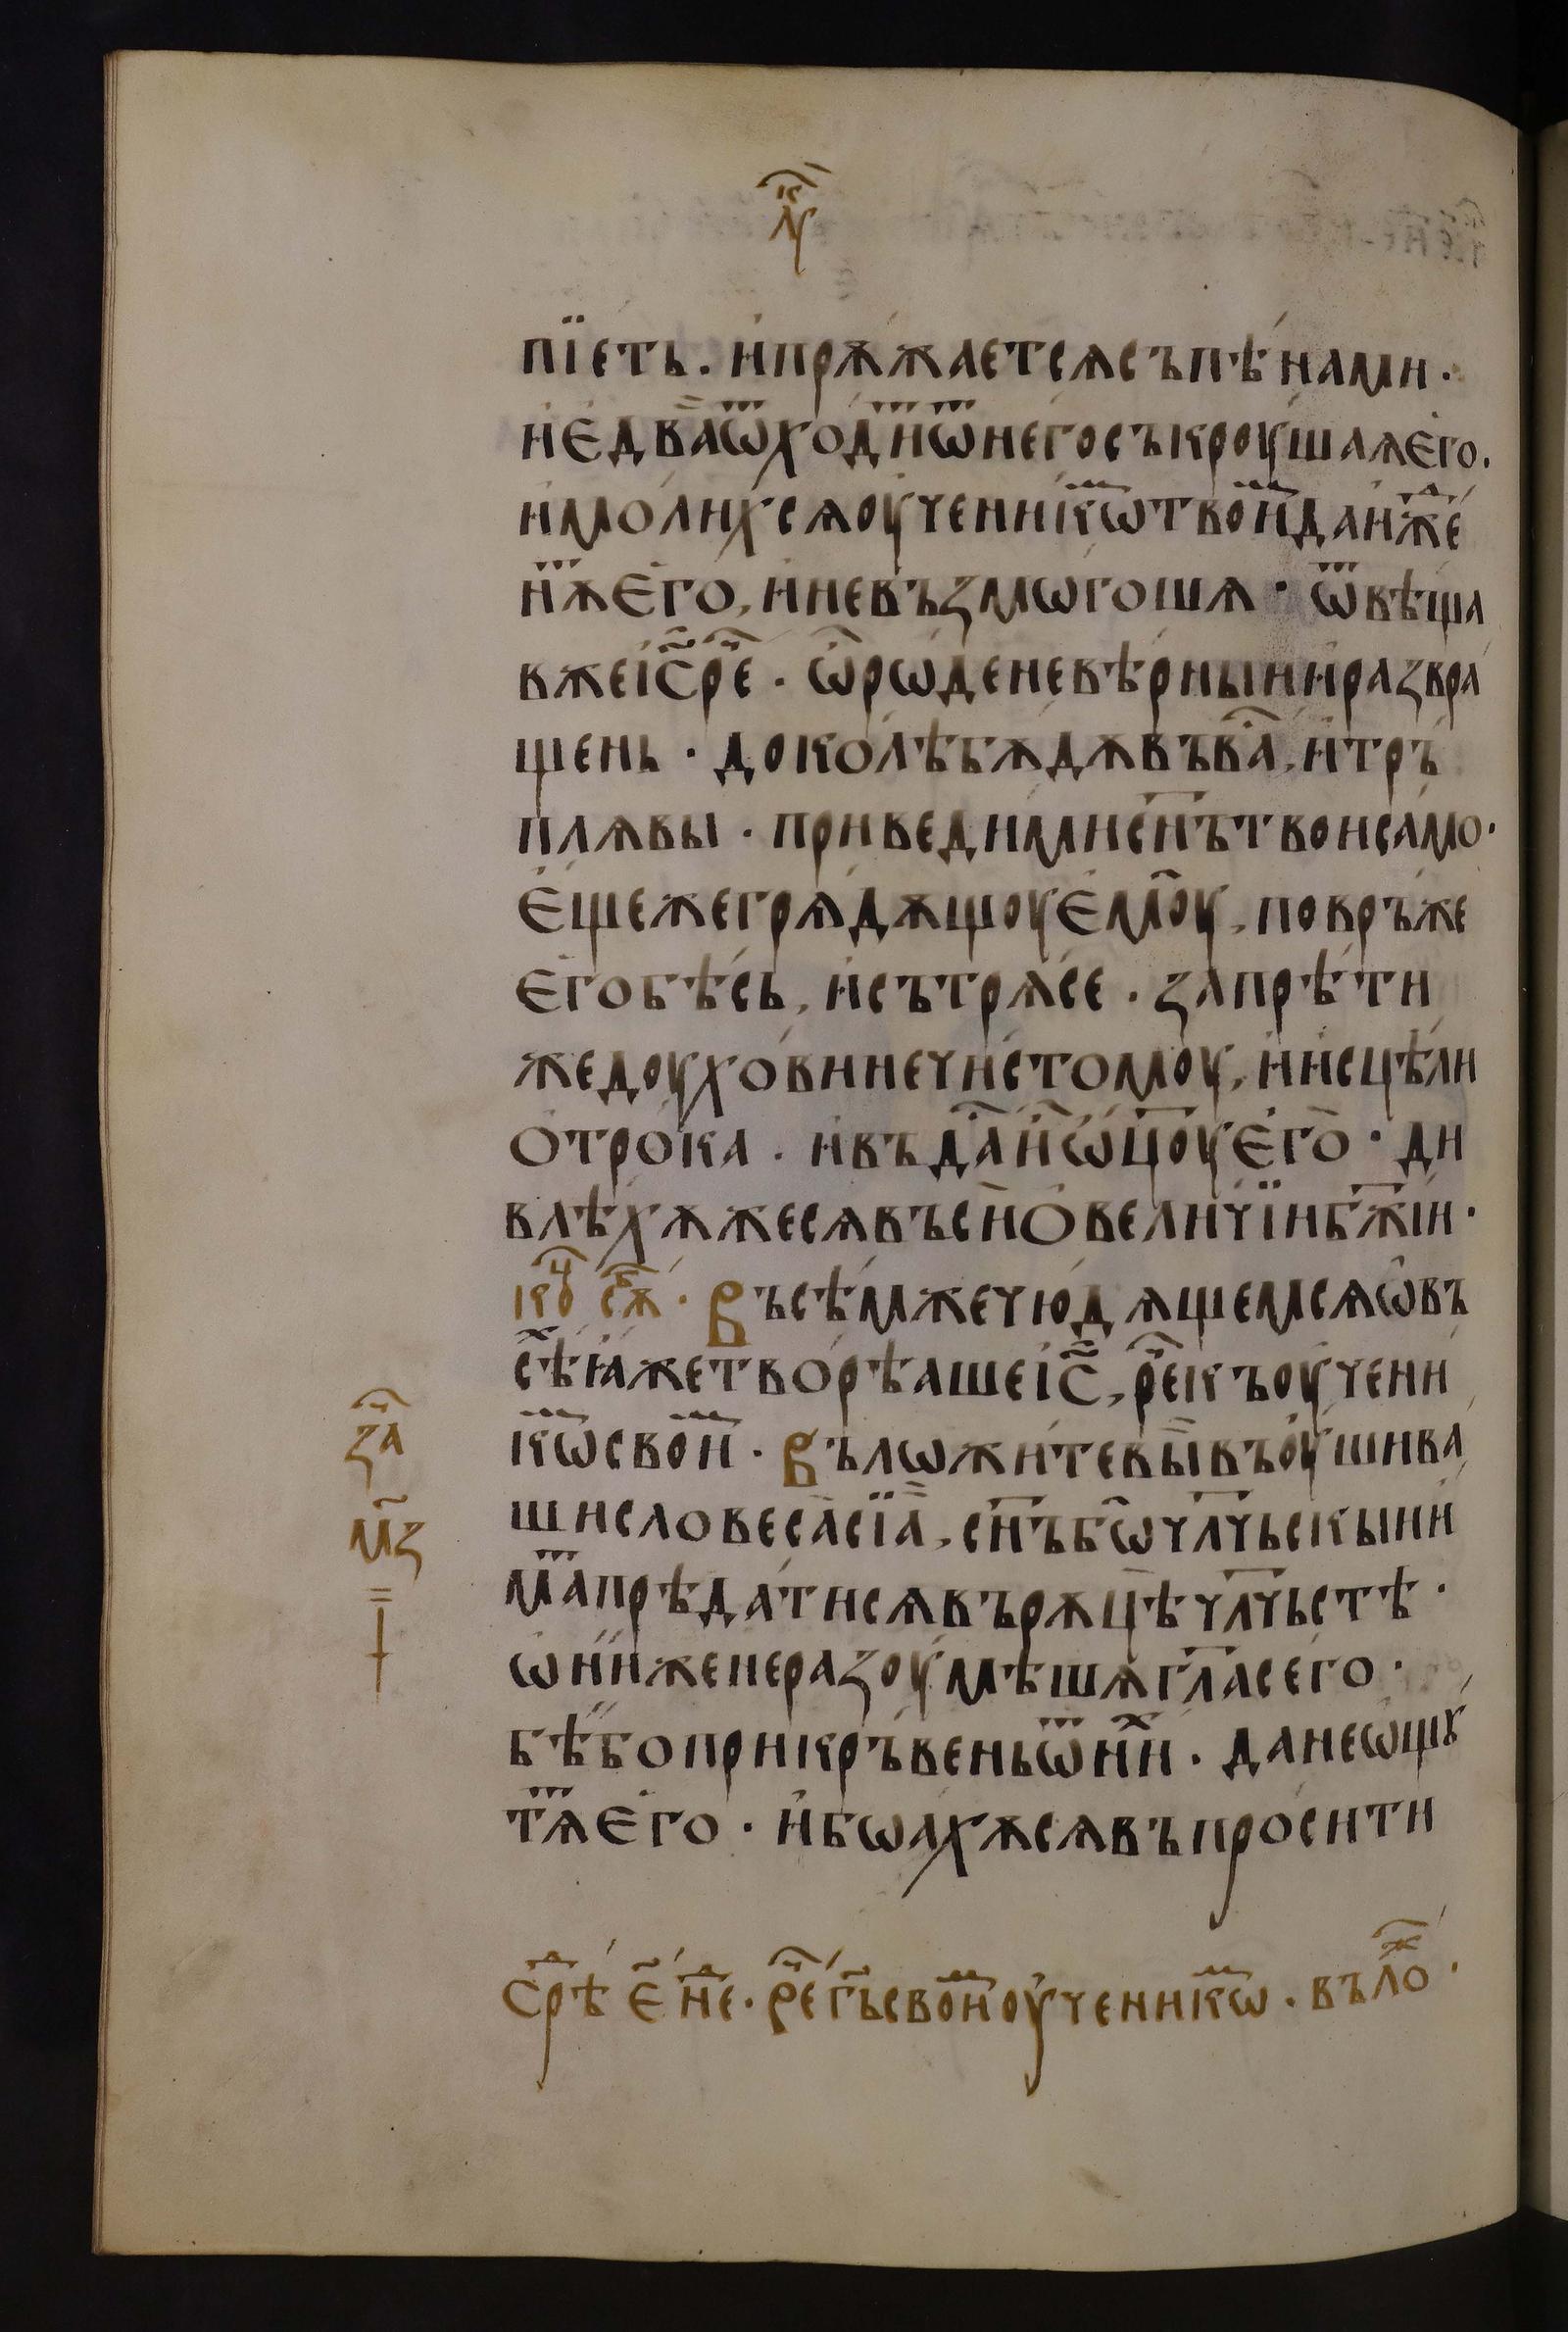 лꙋⷦ҇
пїеть. и҆прѫжаетсѧсъпѣнами.
и҆є҆два̀ѿходⷮи҆ѿнегосъкроушаѧєго.
и҆молиⷯсѧоу҆ченикѡⷨтвоиⷨдаи҆жⷣе
нⷮѫєго, и҆невъꙁмѡгошѧ· ѿвѣща
вжеі҆с҃реⷱ. ѽрѡденевѣрныии҆раꙁвра
щень· доколѣбѫдѫвъваⷭ, и҆тръ
плѧвы. приведимисн҃ътвоисѣмо·
є҆щежегрѧдѫщоуємоу, повръже
єгобѣсь, и҆сътрѧсе. ꙁапрѣти
жедоуховинечистомоу, и҆и҆сцѣли
ѻтрока. и҆въдаⷭи҆ⷯѡц҃оуєго· ди
влѣхѫжесѧвъсиⷩ҇ѻвеличїиб҃жїи·
коⷰ҇ сѫⷠ҇· Въсѣⷨжечюдѧщемсѧѡвъ
сѣⷯꙗжетворѣашеі҆с҃, реⷱкъоучени
кѡⷨсвоиⷨ. Въложитевы̀въоушива
шисловесасїа̀, сн҃ъбѡчл҃чьскыии
маⷮпрѣдатисѧвърѫцѣчл҃чьстѣ·
ѡниженераꙁоумѣшѧгл҃асего·
бѣбоприкръвеньѿниⷯ. данеѡщꙋ
тⷮѧєго· и҆боꙗхѫсѧвъпросити
ꙁаⷱ҇
м҃ꙁ
срⷣѣ є҃ неⷣ. реⷱгьсвоиⷨоученикѡⷨ. вълоⷤ·